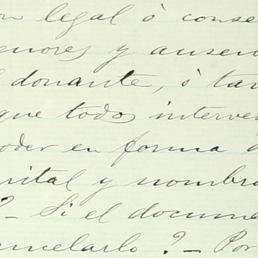 on legal ó conse
enores y ausen
l donante, ó tam
que todos interve
oder en forma d
arital y nombra
?- Si el docume
ancelarlo ?- Por